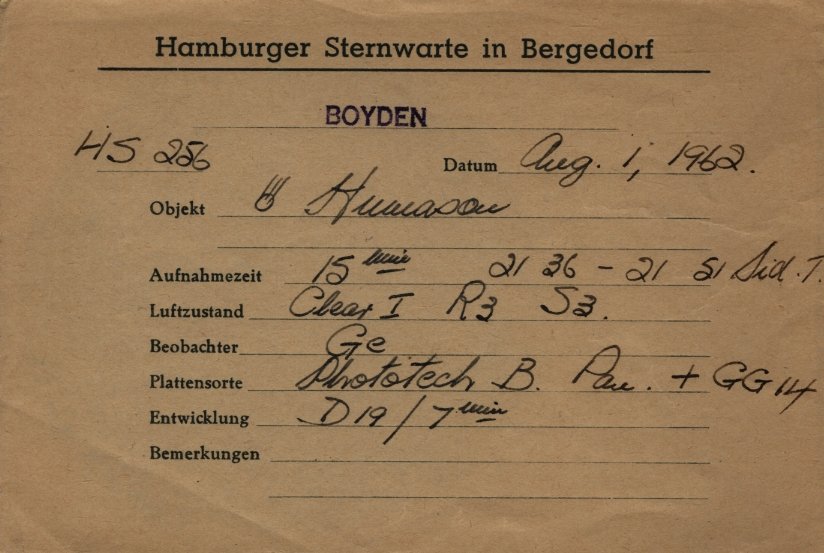 Hamburger Sternwarte in Bergedorf
BOYDEN
HS 256 Datum Aug. 1, 1962.
Objekt ☄ Humason
Aufnahmezeit 15 min 21 36 - 21 51 Sid. T.
Luftzustand Clear I R3 S3.
Beobachter Ge
Plattensorte Phototech B. Pan. + GG 14
Entwicklung D 19 / 7 min
Bemerkungen